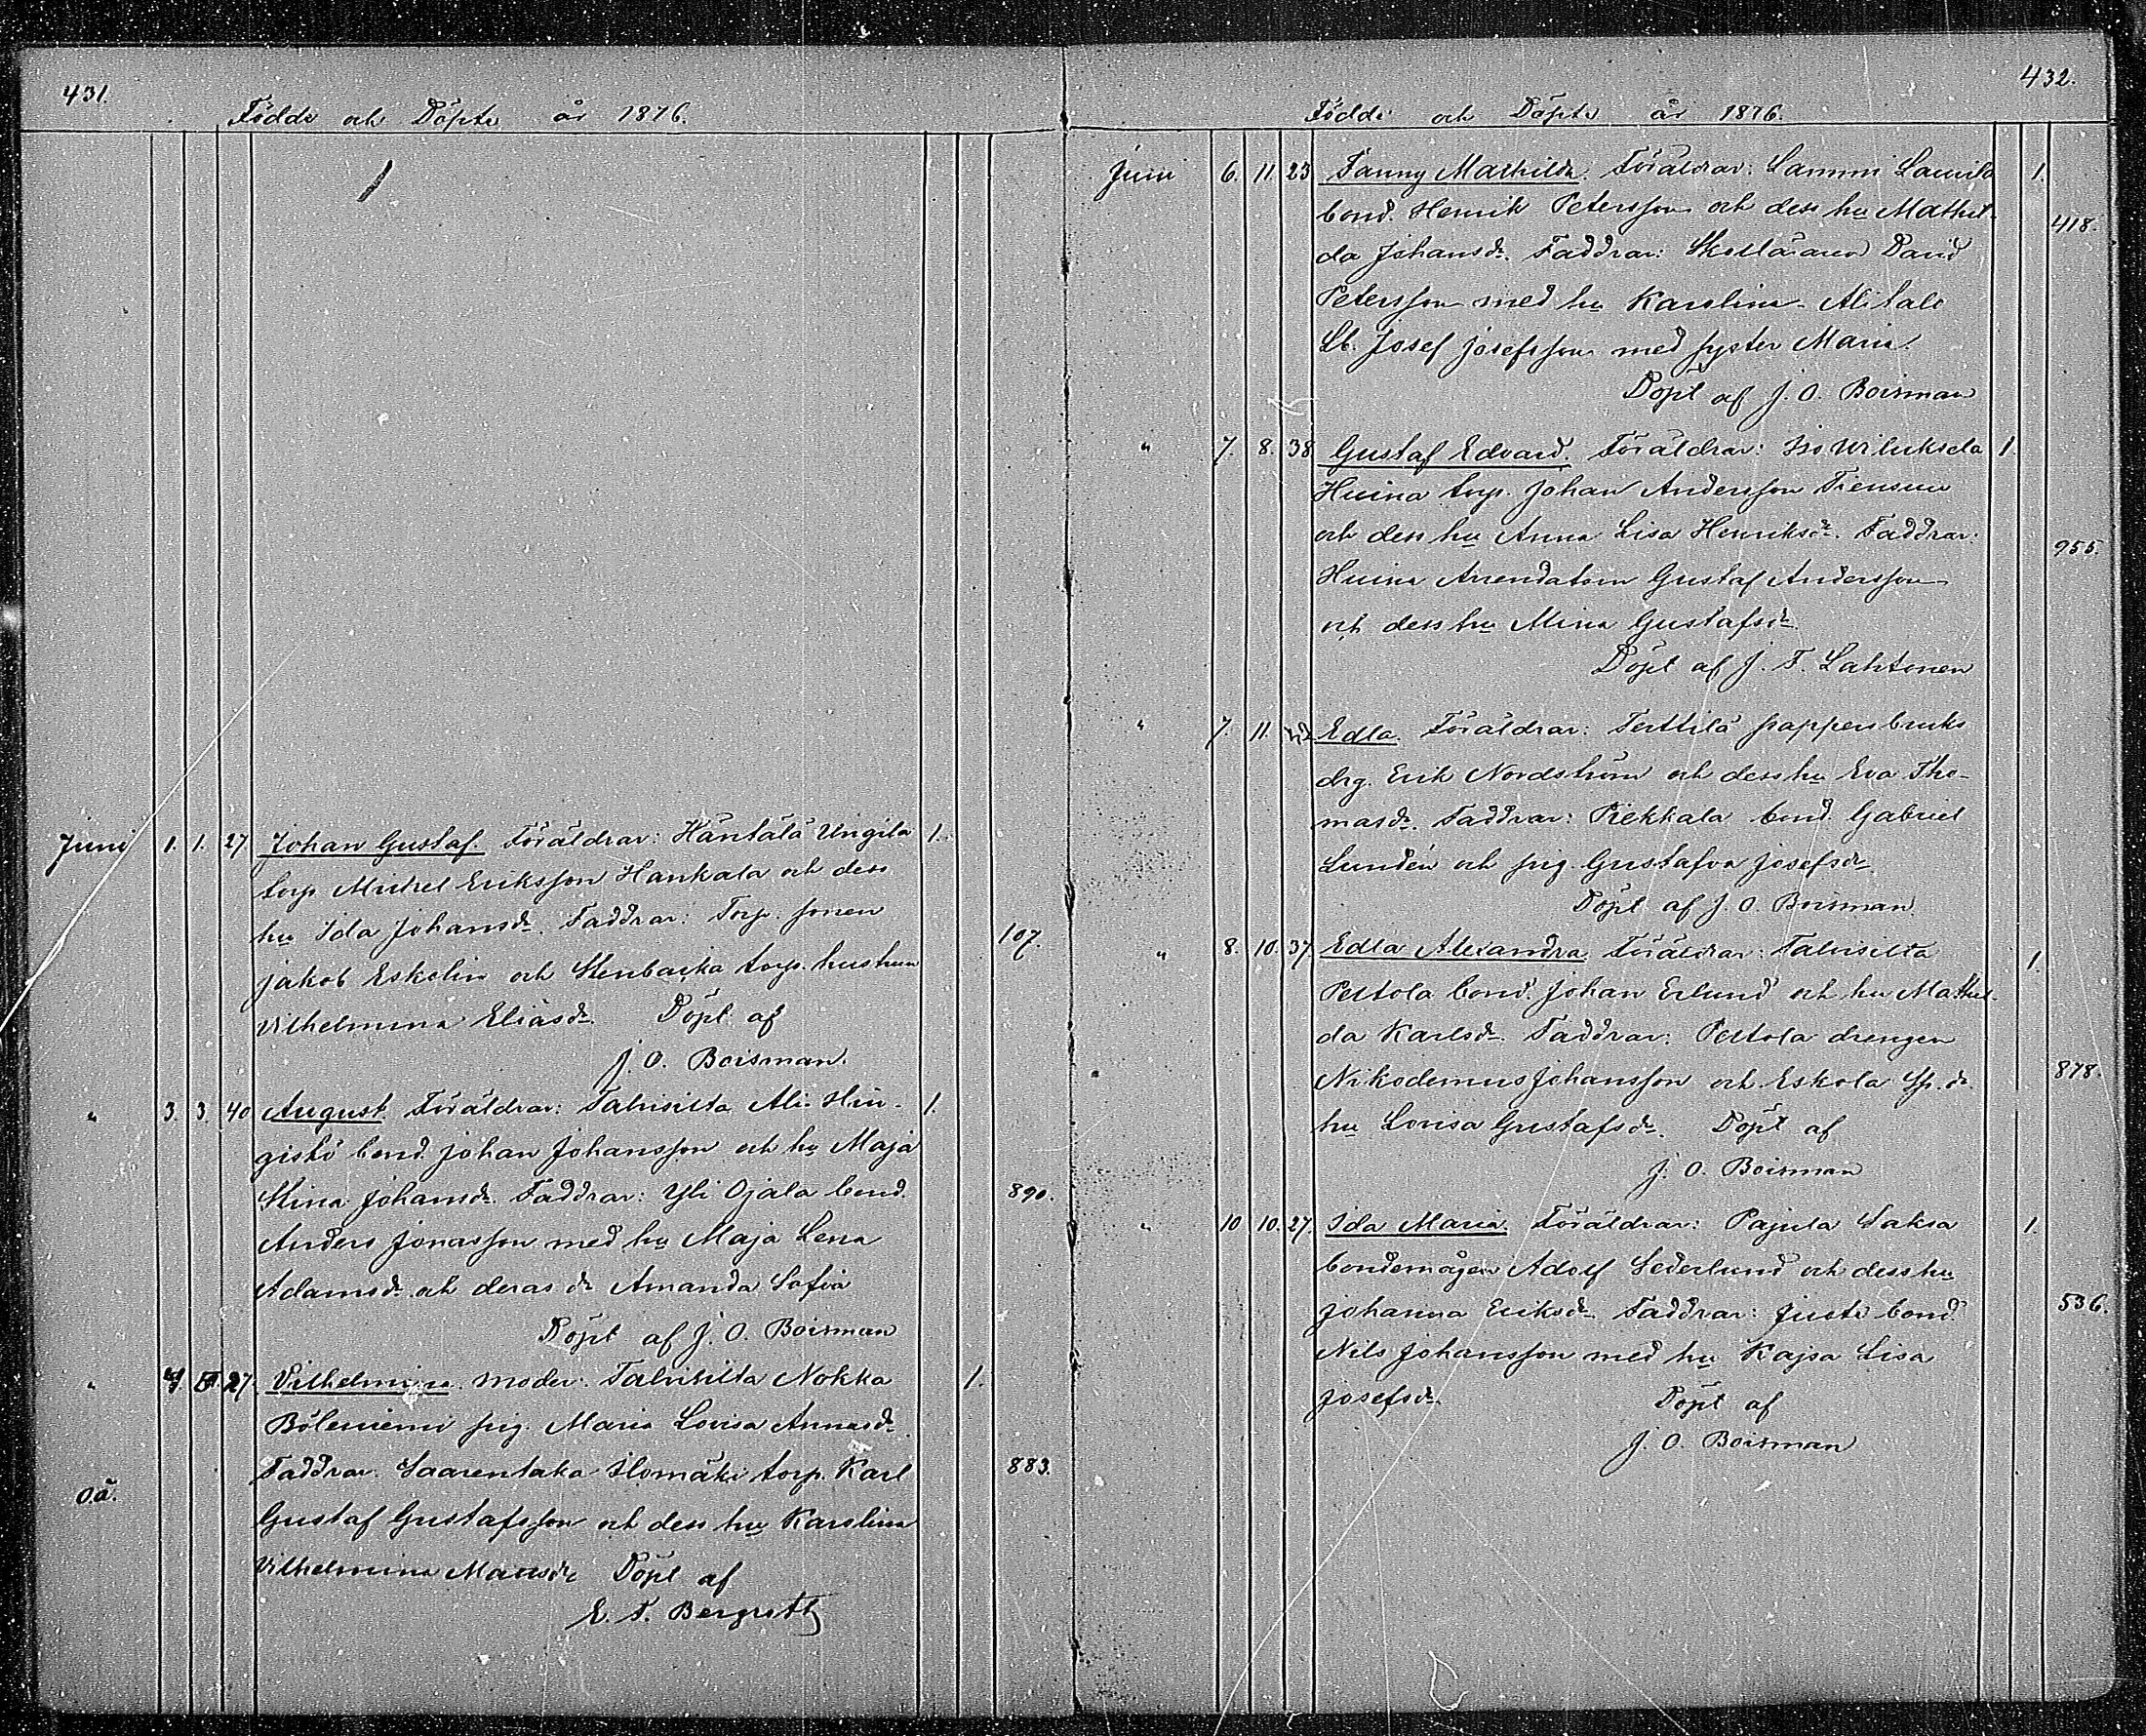 431.
Födde och Döpte år 1876.
Juni 1. 1. 27 Johan Gustaf. Föräldrar: Häntälä Ungila 1.
torp Mickel Eriksson Hankala och dess
hu Ida Johansdr. Faddrar: Torp. sonen 107.
Jakob Eskelin och Stenbacka torp. hustrun
Vilhelmina Eliasdr. Döpt af
J. O. Boisman.
" 3. 3. 40 August. Föräldrar: Talvisilta Ali-Hin- 1.
gistö bond. Johan Johansson och hu Maja
Stina Johansdr. Faddrar: Yli Ojala bond. 890.
Anders Jonasson med hu Maja Lena
Adamsdr. och deras dr Amanda Sofia
Döpt af J. O. Boisman
" 27. Vilhelmina. Moder: Talvisilta Nokka 1.
pig. Maria Lovisa Annasdr.
Faddrar: Saarentaka Ilomäki torp. Karl 883.
o.ä. Gustaf Gustafsson och dess hu Karolina
Vilhelmina Mattsdr Döpt af
E. F. Bergroth
432.
Födde och Döpte år 1876.
Juni 6. 11. 23 Fanny Mathilda. Föräldrar: Lammi Laurila 1.
bond. Henrik Petersson och dess hu Mathil- 418.
da Johansdr. Faddrar: Skolläraren David
Petersson med hu Karolina. Alitalo
Lb. Josef Josefsson med syster Maria.
Döpt af J. O. Boisman
" 7. 8. 38 Gustaf Edvard. Föräldrar: Iso Wiluksela 1.
Huina torp. Johan Andersson Tiensuu
och dess hu Anna Lisa Henriksdr. Faddrar: 955.
Huina Arrendatorn Gustaf Andersson
och dess hu Mina Gustafsdr.
Döpt af J. F. Lahtonen
" 7. 11. Edla. Föräldrar: Terttilä pappersbruks
drg. Erik Nordström och dess hu Eva Tho-
masdr. Faddrar: Piekkala bond. Gabriel
Lundén och pig. Gustafva Josefsdr.
Döpt af J. O. Boisman.
" 8. 10. 37. Edla Alexandra. Föräldrar: Talvisilta 1.
Pertola bond. Johan Erlund och hu Mathil-
da Karlsdr. Faddrar: Pertola drengen
Nikodemus Johansson och Eskola Sp. dr. 878.
hu Lovisa Gustafsdr. Döpt af
J. O. Boisman
" 10 10. 27. Ida Maria. Föräldrar: Pajula Saksa 1.
bondemågen Adolf Sederlund och dess hu
Johanna Eriksdr. Faddrar: Juste bond. 536.
Nils Johansson med hu Kajsa Lisa
Josefsdr. Döpt af
J. O. Boisman